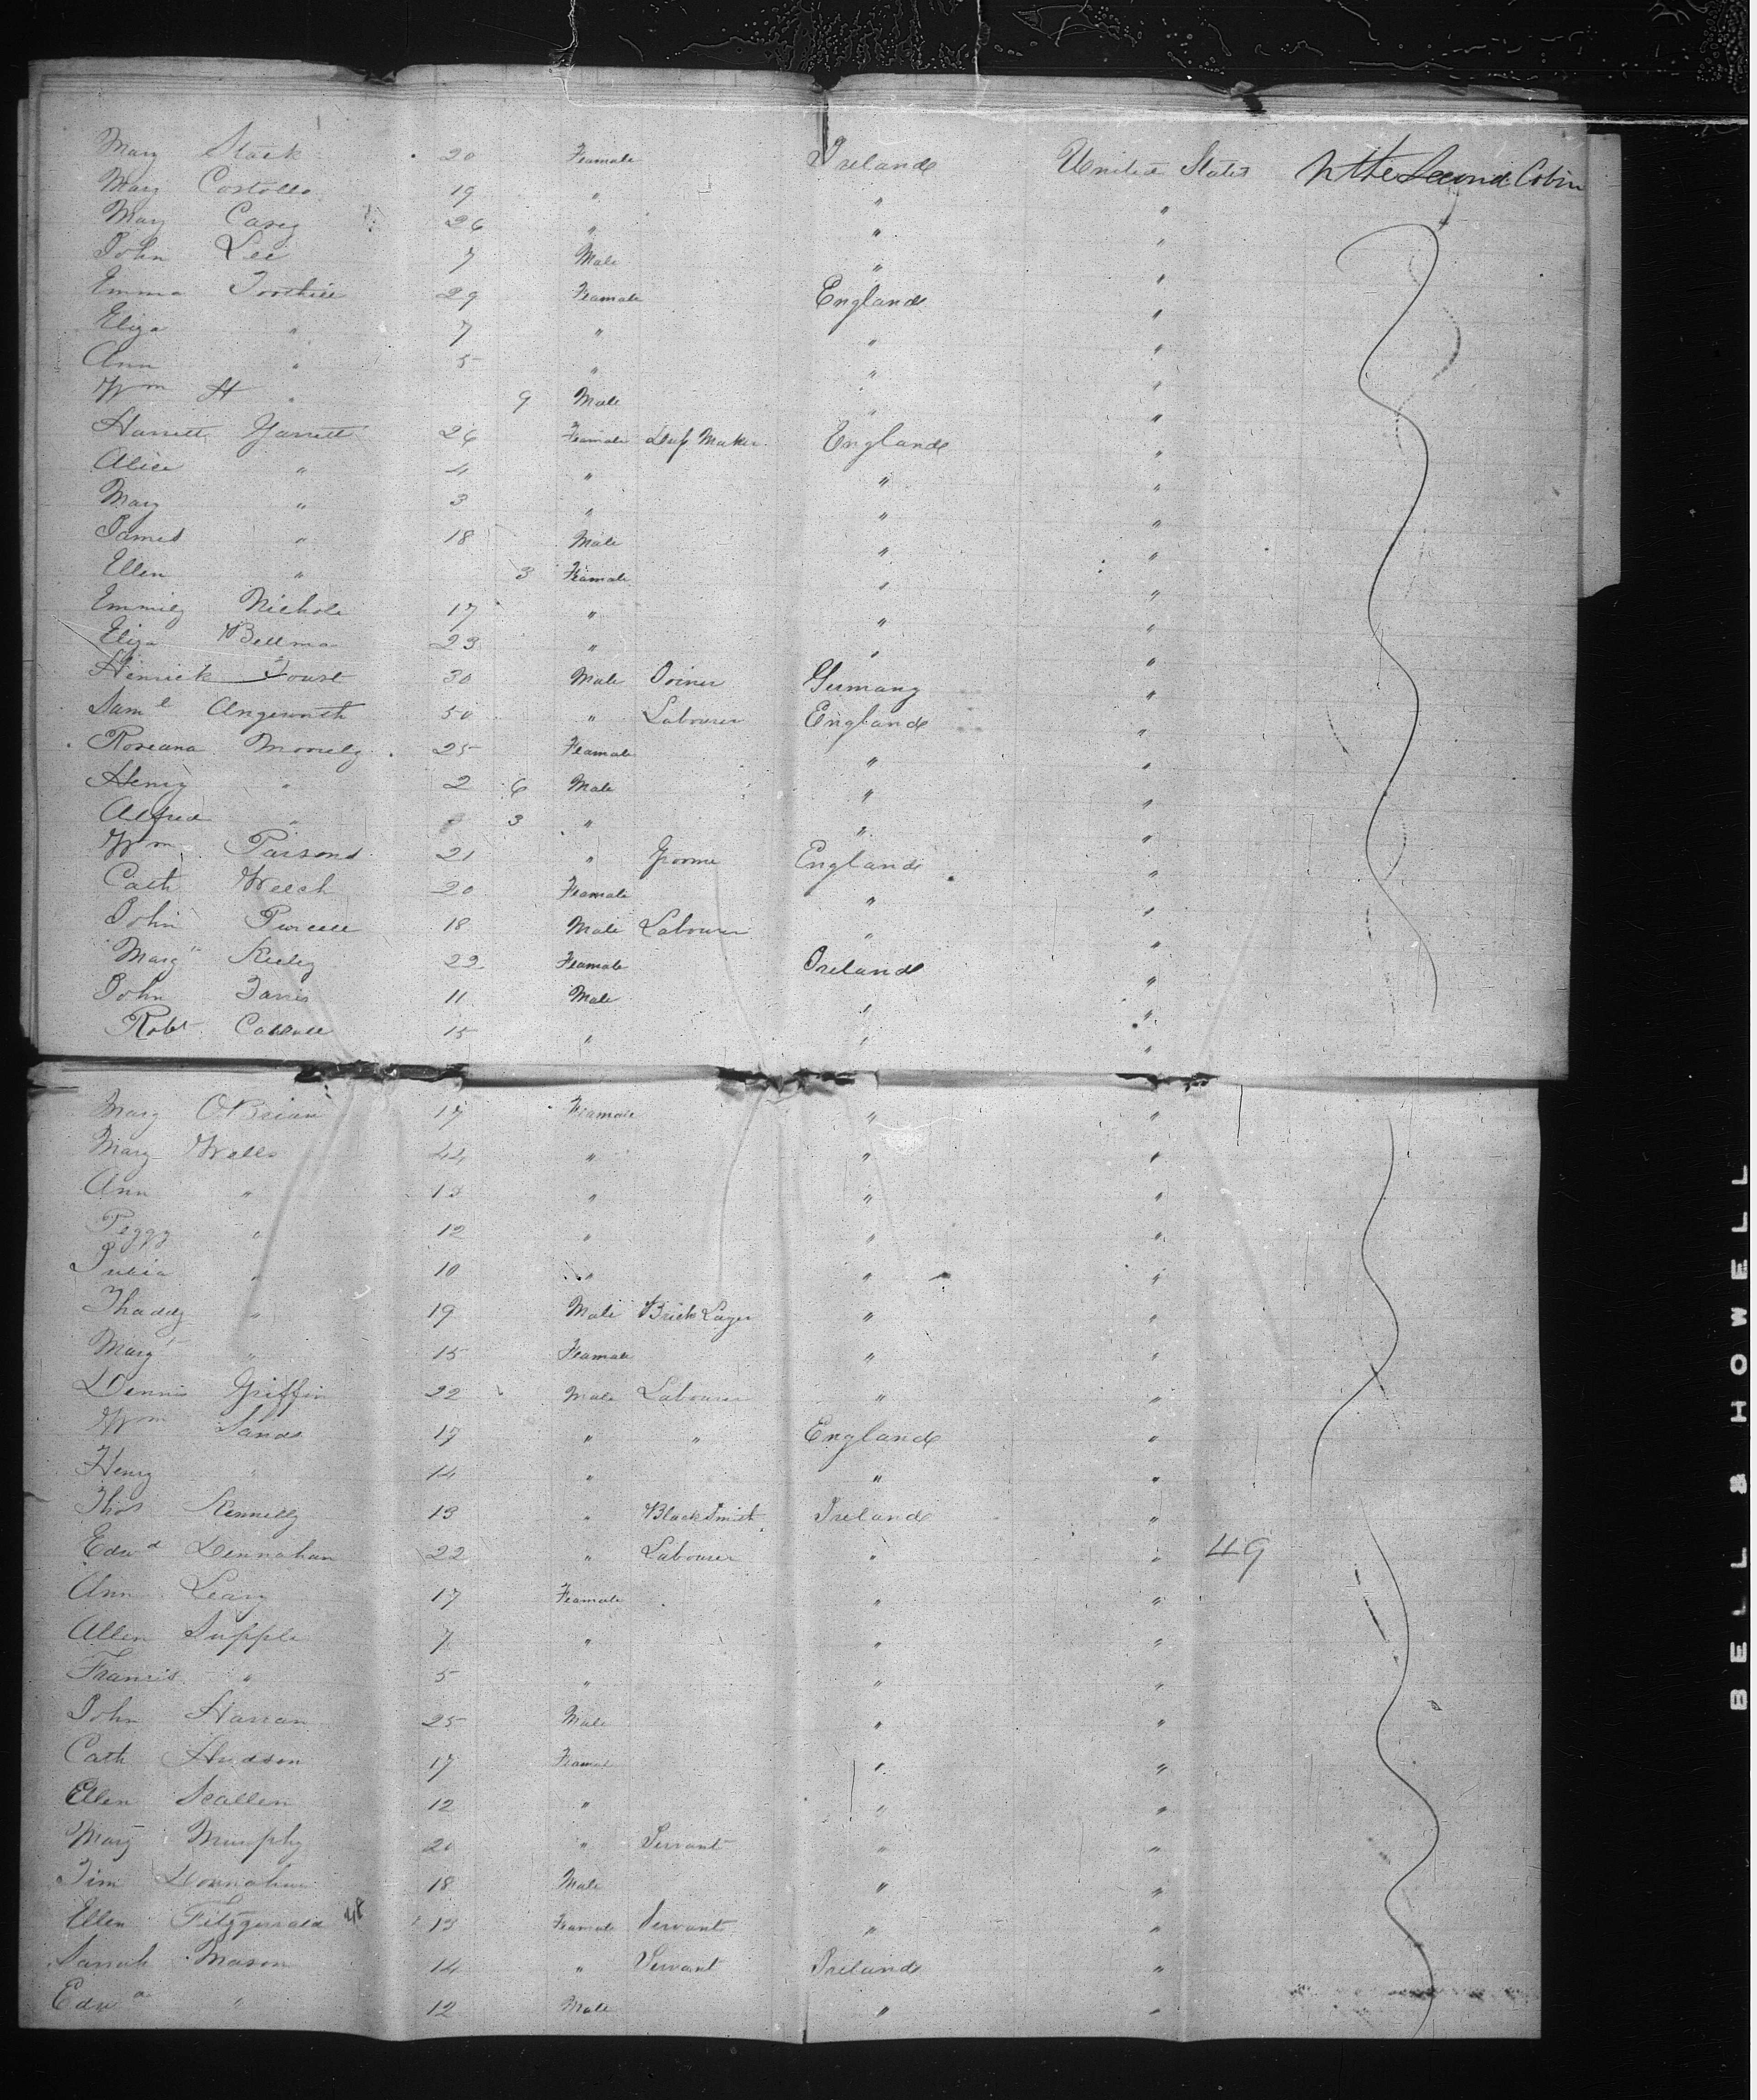 Mary Stack 20 Feamale Ireland United States In the Second Cabin
Mary Costollo 19 " " "
Mary Carey 26 " " "
John Lee 7 Male " "
Emma Toothill 29 Feamale England "
Eliza " 7 " " "
Ann " 5 " " "
Wm H " 9 Male " "
Harriett Garrett 26 Feamale Maker England "
Alice " 4 " " "
Mary " 3 " " "
James " 18 Male " "
Ellen " 3 Feamale " "
Emmily Nichols 17 " " "
Eliza Bellma 23 " " "
Hinrick 30 Male Joiner Germany "
Saml Angworth 50 " Labourer England "
Roseana 25 Feamale " "
Henry " 2 6 Male " "
Alfred " 3 " " "
Wm Parsons 21 " Groome England "
Cath Welch 20 Feamale " "
John Purcell 18 Male Labourer " "
Mary Kieley 22 Feamale Ireland "
John 11 Male " "
Robt 15 " " "
Mary OBrian 17 Feamale " "
Mary Wells 44 " " "
Ann " 13 " " "
Peggy " 12 " " "
Julia " 10 " " "
Thaddy " 19 Male Brick Layer " "
Mary " 15 Feamale " "
Dennis Griffin 22 Male Labourer " "
Wm Sands 17 " " England "
Henry " 14 " " "
Thos Kennelly 13 " BlackSmith Ireland "
Edwd Dennahan 22 " Labourer " " 49
Ann Leary 17 Feamale " "
Allen Supple 7 " " "
Francis " 5 " " "
John Harran 25 Male " "
Cath Hudson 17 Feamal " "
Ellen Scallen 12 " " "
Mary Murphy 20 " Servant " "
Tim Donnahue 18 Male " "
Ellen Fitzgerald 48 13 Feamale Servant " "
Sarrah Mason 14 " Servant Ireland "
Edwd " 12 Male " "
BELL & HOWELL